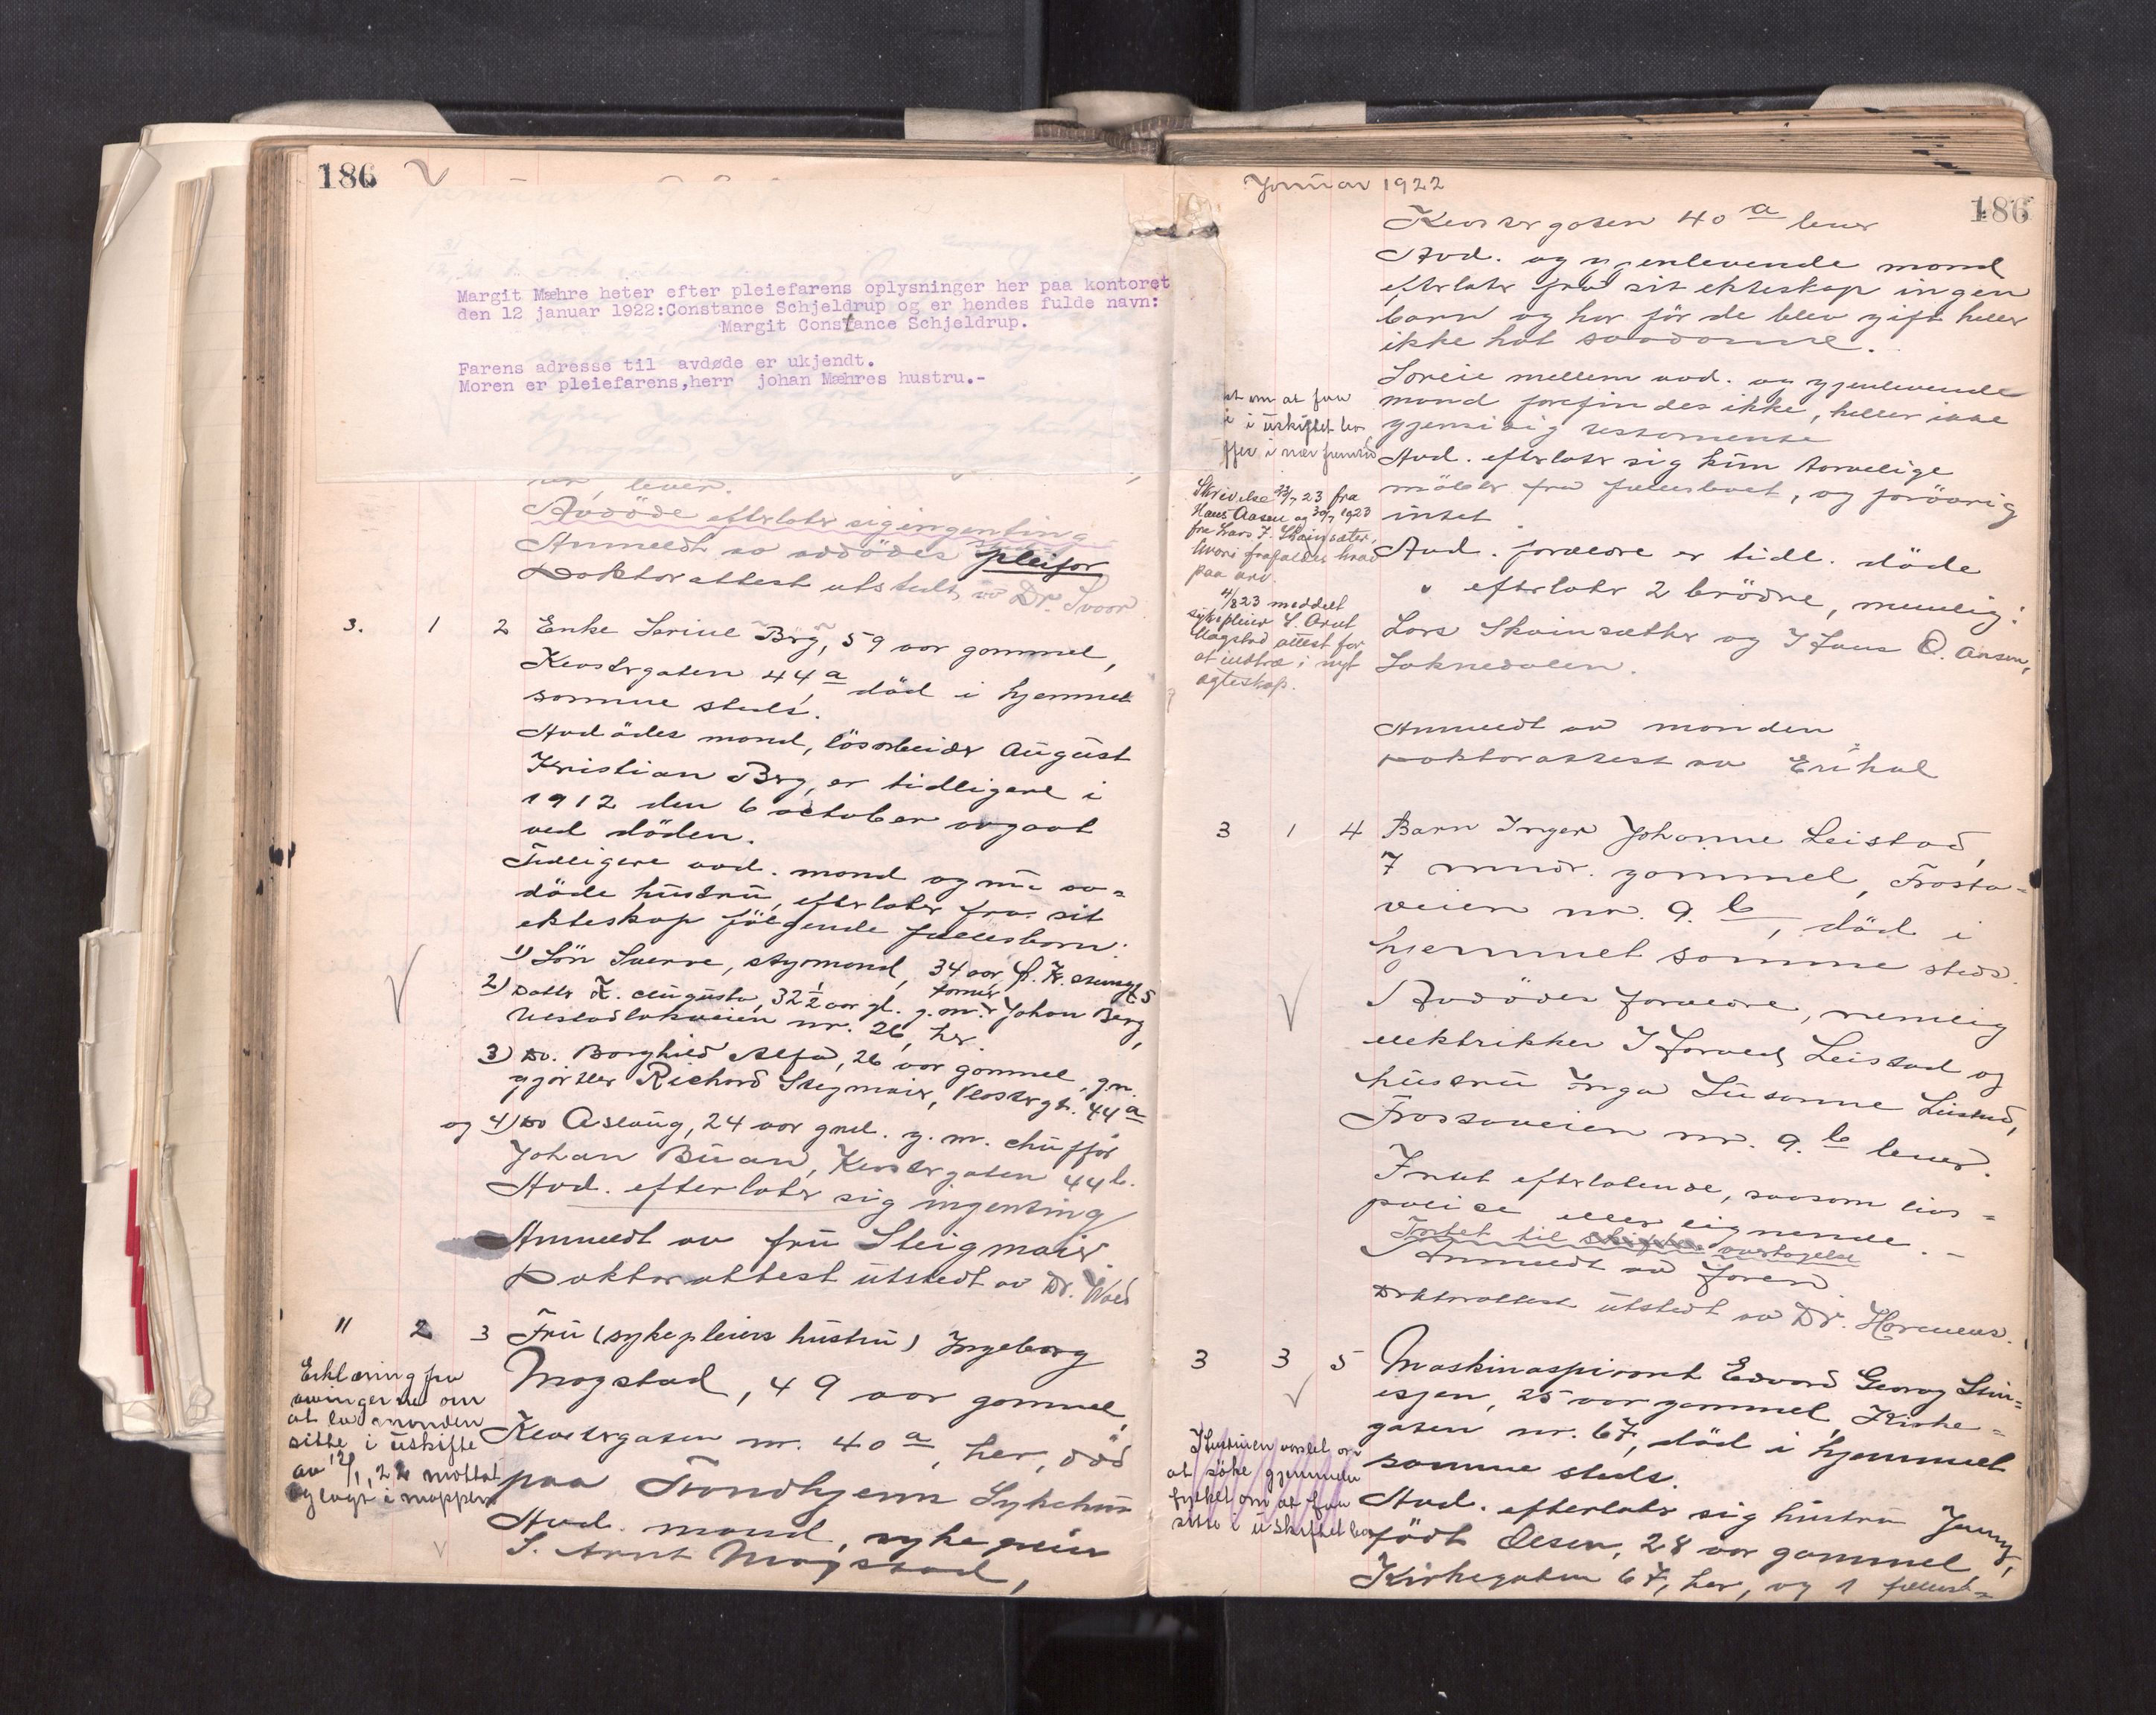 186
Margit Mæhre heter efter pleiefarens oplysninger her paa kontoret
den 12 januar 1922:Constance Schjeldrup og er hendes fulde navn:
Margit Constance Schjeldrup.
Farens adresse til avdøde er ukjendt.
Moren er pleiefarens,herr johan Mæhres hustru.-
lever.
Avdöde efterlater sig ingenting
Anmeldt av avdödes pleifar
Doktorattest utstedt av Dr. Svaar
3. 1 2 Enke Serine Brg, 59 aar gammel,
Klostergaten 44a, död i hjemmet
samme steds.
Avdödes mand, lösarbeider August
Kristian Brg, er tidligere i
1912 den 6 october avgaat
ved döden.
Tidligere avd. mand og nu av=
döde hustru, efterlater fra sit
ekteskap fölgende fællesbarn:
1) Sön Sverre, styrmand, 34 aar,
2) Datter K. Augusta, 32 1/2 aar gl. g.m. tømr Johan Berg,
nr. 26, her.
3) Do. Borghild Alfa, 26 aar gammel, g.m.
gjörtler Richard Stegmaier, Klostergt. 44a
og 4) Do Aslaug, 24 aar gml. g. m. chuffør
Johan Buan, Klostergaten 44 b.
Avd. efterlater sig ingenting
Anmeldt av fru Steigmaier
Doktorattest utstedt av Dr. Wold
" 2 3 Fru (sykepleiers hustru) Ingeborg
Magstad, 49 aar gammel,
Klostergaten nr. 40a, her, död
paa Trondhjems Sykehus
Avd. mand, sykepleier
S. Arnt Magstad,
Erklæring fra
arvingerne om
at la manden
sitte i uskifte
av 12/1, 22 mottat
og lagt i mappen
Januar 1922
186
Klostergaten 40a lever
Avd. og gjenlevende mand
efterlater fra sit ekteskap ingen
barn og har før de blev gift heller
ikke hat saadanne.
Særeie mellem avd. og gjenlevende
mand forefindes ikke, heller ikke
gjensidig testamente
Avd. efterlater sig kun tarvelige
möbler fra fællesboet, og forövrig
intet.
Avd. forældre er tidl. döde
" efterlater 2 brödre, nemlig:
Lars Skainsæther og Hans O. Aasen,
Soknedalen.
Anmeldt av manden
Doktorattest av
at om at faa
i uskiftet bo
i nær fremtid
Skrivelse 23/7 23 fra
Hans Aasen og 30/7 1923
fra Lars J. Skainsæter,
hvori frafaldes krav
paa arv.
4/8 23 meddelt
sykepleier S. Arnt
Magstad attest for
at indtræ i nyt
ægteskap.
3 1 4 Barn Inger Johanne Leistad,
7 mndr. gammel, Frosta=
veien nr. 9. b, död i
hjemmet samme steds.
Avdödes forældre, nemlig
elektriker Harald Leistad og
hustru Inga Susanne Leistad,
Frostaveien nr. 9. b lever.
Intet efterlatende, saasom livs=
police eller lignende.-
Intet til overtagelse
Anmeldt av faren
Doktorattest utstedt av Dr. Harmens.
3 3 5 Maskinaspirant Edvard Georg Stin=
esjen, 25 aar gammel, Kirke=
gaten nr. 67, död i hjemmet
samme steds.
Avd. efterlater sig hustru Jenny,
född Olsen, 28 aar gammel,
Kirkegaten 67, her, og 1 fællesb=
Hustruen varslet om
at söke gjennem
fylket om at faa
sitte i uskiftet bo